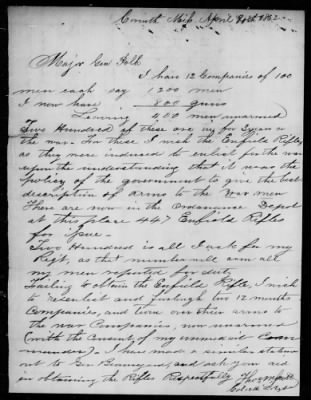 Corinth Miss April 2d 1862
Major Gen Polk
I have 12 Companies of 100
men each say 1200 men
I now have 800 guns
Leaving 400 men unarmed
Five Hundred of these are my for
the war. For these I wish the Enfield Rifles
as they were induced to enlist for the war
upon the understanding that it was the
policy of the government to give the best
description of arms to the War men
There are now in the Ordanance Depot
at this place 447 Enfield Rifles
for issue.
Five Hundred is all I ask for my
Regt, as that number will arm all
my men reported for duty
Failing to obtain the Enfield Rifle, I wish
to reenlist and furlough two 12 months
Companies, and turn over their arms to
the war Companies, now unarmed
(with the Consent of my immediate Com
mander). I have made a similar statem
ent to Gen Beauregard, and ask your aid
in obtaining the Rifles Respectfully